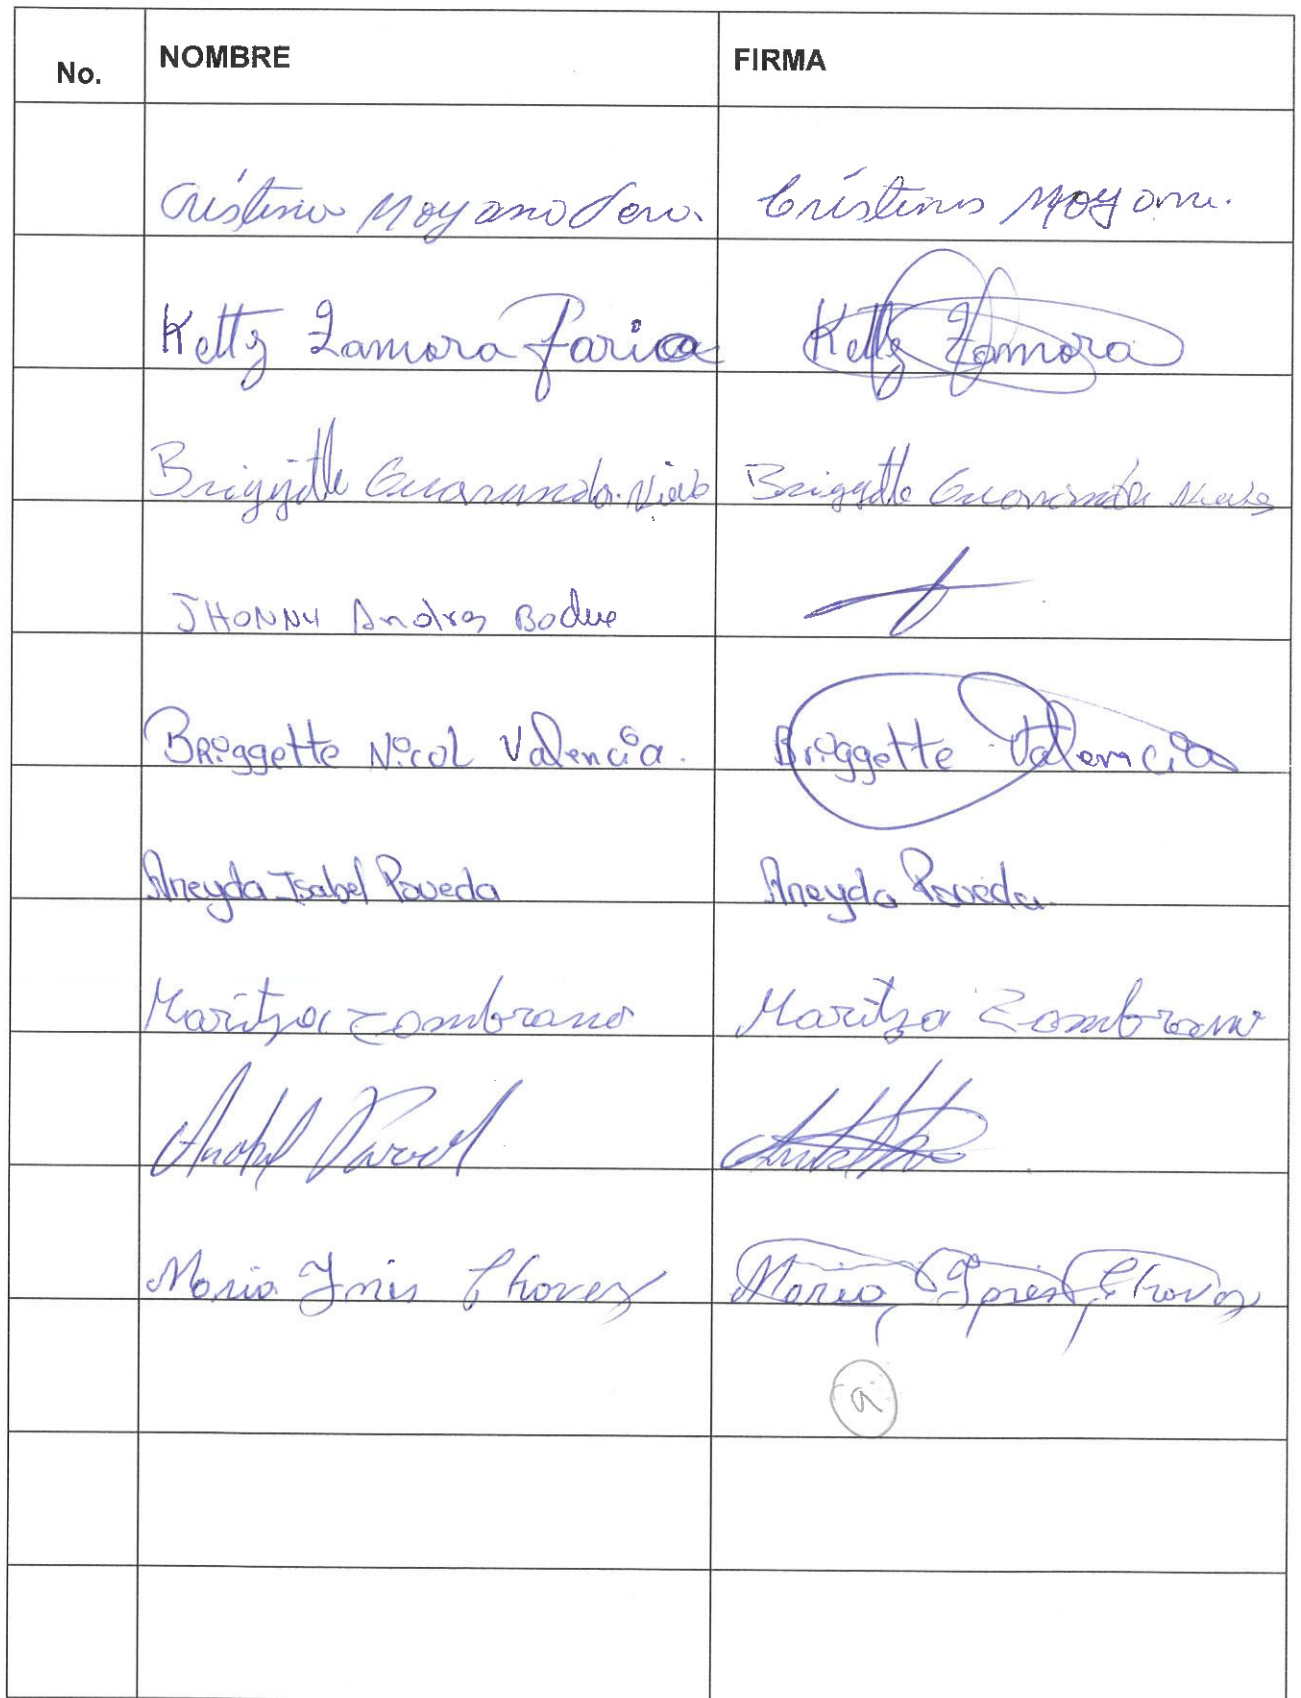 No. NOMBRE FIRMA
Cristina Moyano Cristina Moyano.
Ketty Zamora Farica Ketty Zamora
Briggitte Guaranda Briggitte Guaranda
JHONNY Andres Bodue
BRiggette Nicol Valencia. Briggette Valencia
Aneyda Isabel Poveda Aneyda Poveda
Maritza Zambrano Maritza Zambrano
Maria Ines Chavez Maria Ines Chavez
9